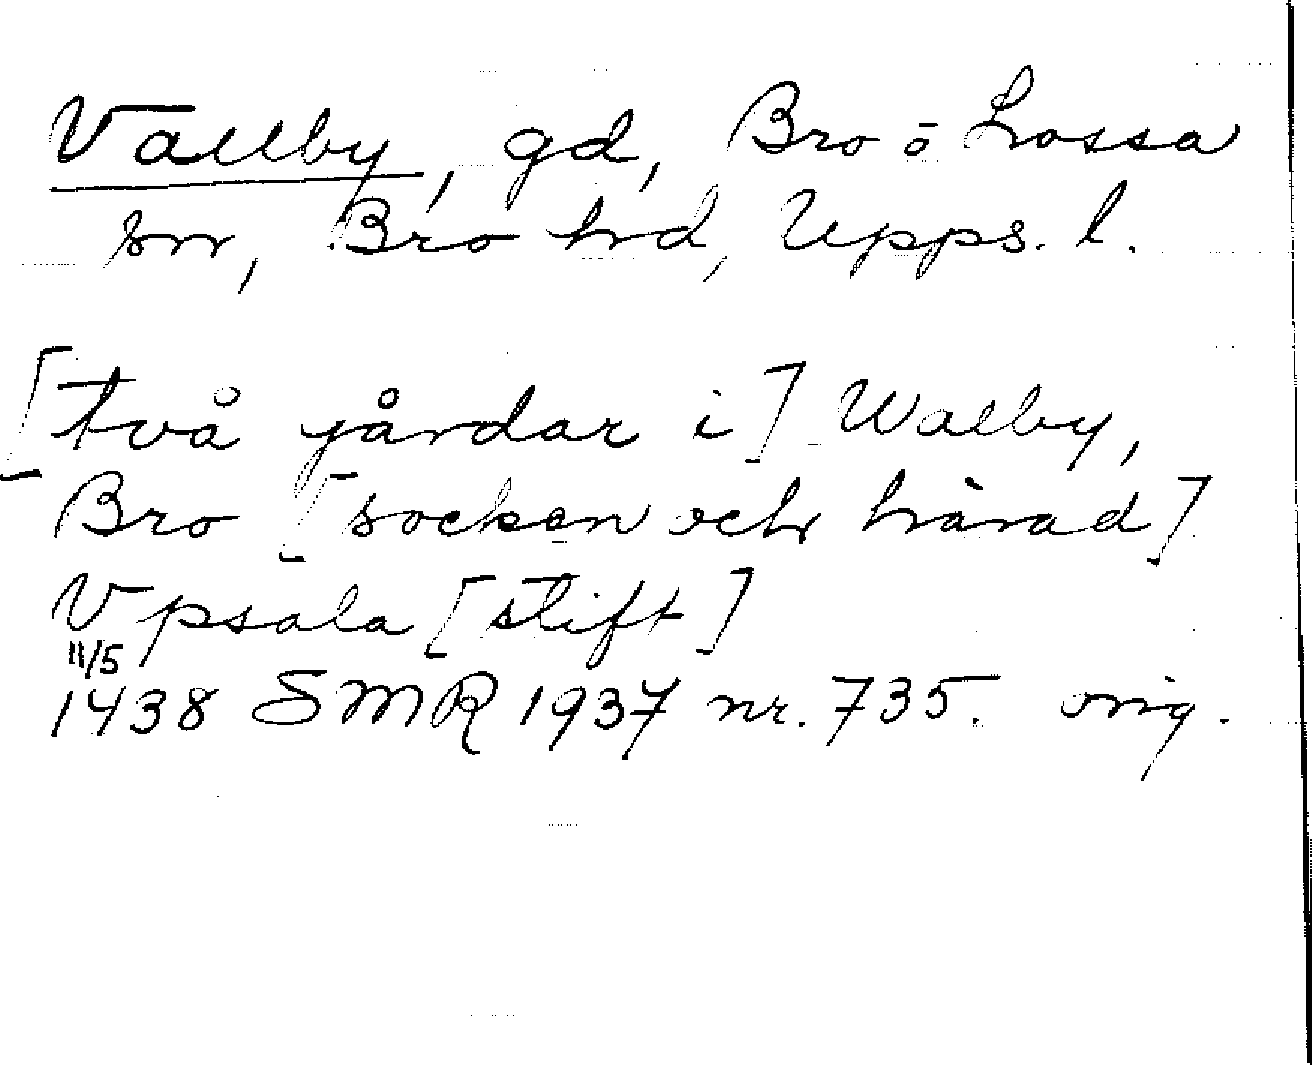 Vallby, gd, Bro o Lossa
snr, Bro hrd, Upps. l.
[två gårdar i] Walby,
Bro [socken och härad]
Vpsala [stift]
11/5
1438 SMR 1937 nr. 735. orig.